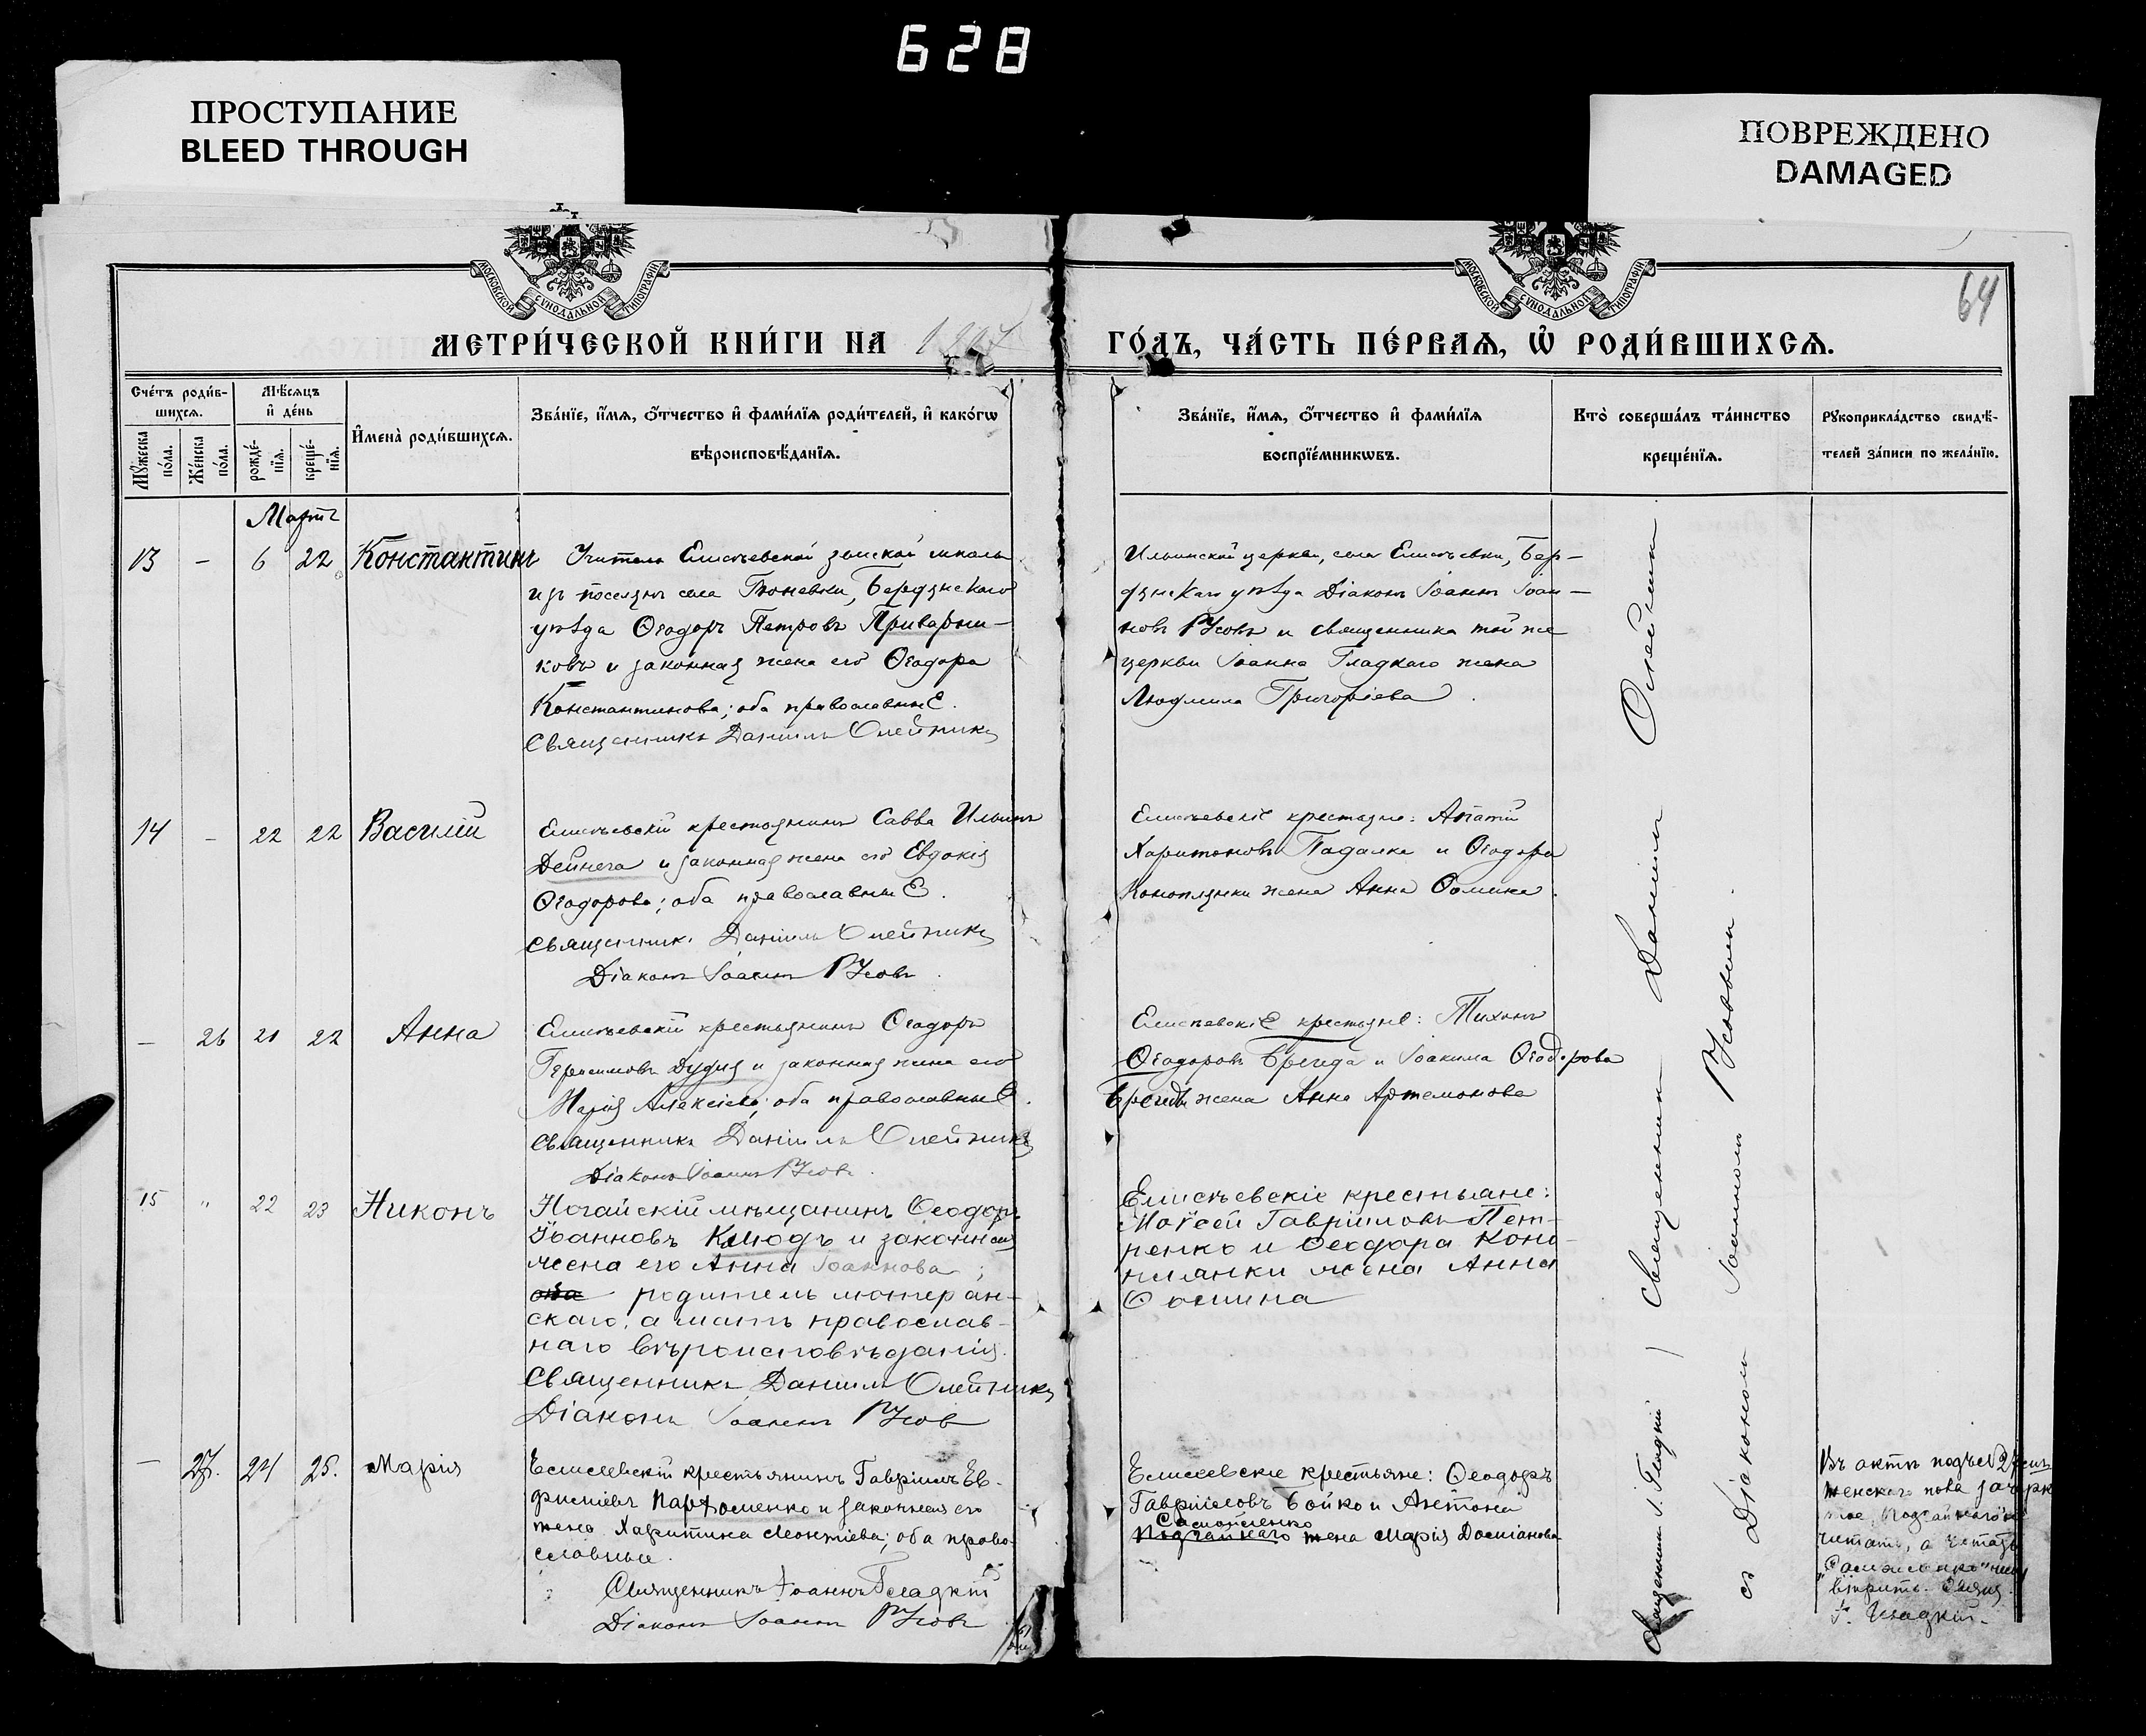 628
ПРОСТУПАНИЕ
BLEED THROUGH
ПОВРЕЖДЕНО
DAMAGED
МОСКОВСКОЙ СѴНОДАЛЬНОЙ ТИПОГРАФІИ
МОСКОВСКОЙ СѴНОДАЛЬНОЙ ТИПОГРАФІИ
64
МЕТРИ́ЧЕСКОЙ КНИ́ГИ НА
ГО́ДЪ, ЧА́СТЬ ПЕ́РВАѦ, Ѡ҆ РОДИ́ВШИХСѦ.
Сче́тъ роди́в-
шихсѧ.
Мꙋ́жеска по́ла.
Же́нска по́ла.
Мѣ́сѧцъ
и҆ де́нь
рожде́-
нїѧ.
креще́-
нїѧ.
И҆мена̀ роди́вшихсѧ.
Зва́нїе, и҆́мѧ, ѻ҆́тчество и҆ фами́лїѧ роди́телей, и҆ како́гѡ
вѣроисповѣ́данїѧ.
Зва́нїе, и҆́мѧ, ѻ҆́тчество и҆ фами́лїѧ
воспрїе́мникѡвъ.
Кто̀ соверша́лъ та́инство
креще́нїѧ.
Рꙋкоприкла́дство свидѣ́-
телей за́писи по жела́нїю.
Мартъ
13 - 6 22 Константинъ
Учитель Елисѣевской земской школы
изъ поселянъ села Бердянскаго
уѣзда Ѳеодоръ Петровъ Приварни-
ковъ и законная жена его Ѳеодора
Константинова; оба православные.
Священникъ Даніилъ Олейникъ
Ильинской церкви, села Елисѣевки, Бер-
дянскаго уѣзда Діаконъ Іоаннъ Іоан-
новъ Усовъ и священника той же
церкви Іоанна Гладкаго жена
Людмила Григоріева.
14 - 22 22 Василій
Елисѣевскій крестьянинъ Савва Ильинъ
Дейнега и законная жена его Евдокія
Ѳеодорова; оба православные.
Священникъ Даніилъ Олейникъ
Діаконъ Іоаннъ Усовъ.
Елисѣевскіе крестьяне: Агапій
Харитоновъ Падалка и Ѳеодора
Коноплянки жена Анна Ѳомина.
- 26 21 22 Анна
Елисѣевскій крестьянинъ Ѳеодоръ
Герасимовъ Дудня и законная жена его
Марія Алексіева; оба православные.
Священникъ Даніилъ Олейникъ
Діаконъ Іоаннъ Усовъ.
Елисѣевскіе крестьяне: Тихонъ
Ѳеодоровъ Брегида и Іоакима Ѳеодорова
Брегиды жена Анна Артемонова
15 " 22 23 Никонъ
Ногайскій мѣщанинъ Ѳеодоръ
Іоанновъ Клюдъ и законная
жена его Анна Іоаннова;
оба родитель лютеран-
скаго, а мать православ-
наго вѣроисповѣданія.
Священникъ Даніилъ Олейникъ
Діаконъ Іоаннъ Усовъ
Елисѣевскіе крестьяне:
Моѵсей Гавріиловъ Пет-
ренко и Ѳеодора Коно-
плянки жена Анна
Ѳомина
- 27. 24 25. Марія
Елисеевскій крестьянинъ Гавріилъ Ев-
фиміевъ Парфоменко и законная его
жена Харитина Леонтіева; оба право-
славные.
Священникъ Іоаннъ Гладкій
Діаконъ Іоаннъ Усовъ
Елисеевскіе крестьяне: Ѳеодоръ
Гавріиловъ Бойко и Антонія
Самойленко
жена Марія Даміанова
Священникъ І. Гладкій / Священникъ Даніилъ Олейникъ
съ Діакономъ Іоанномъ Усовымъ.
Въ актѣ подъ № 27
женскаго пола зачерк
читать, а читать
"Самойленко"
вѣрить. Свящ.
І. Гладкій.